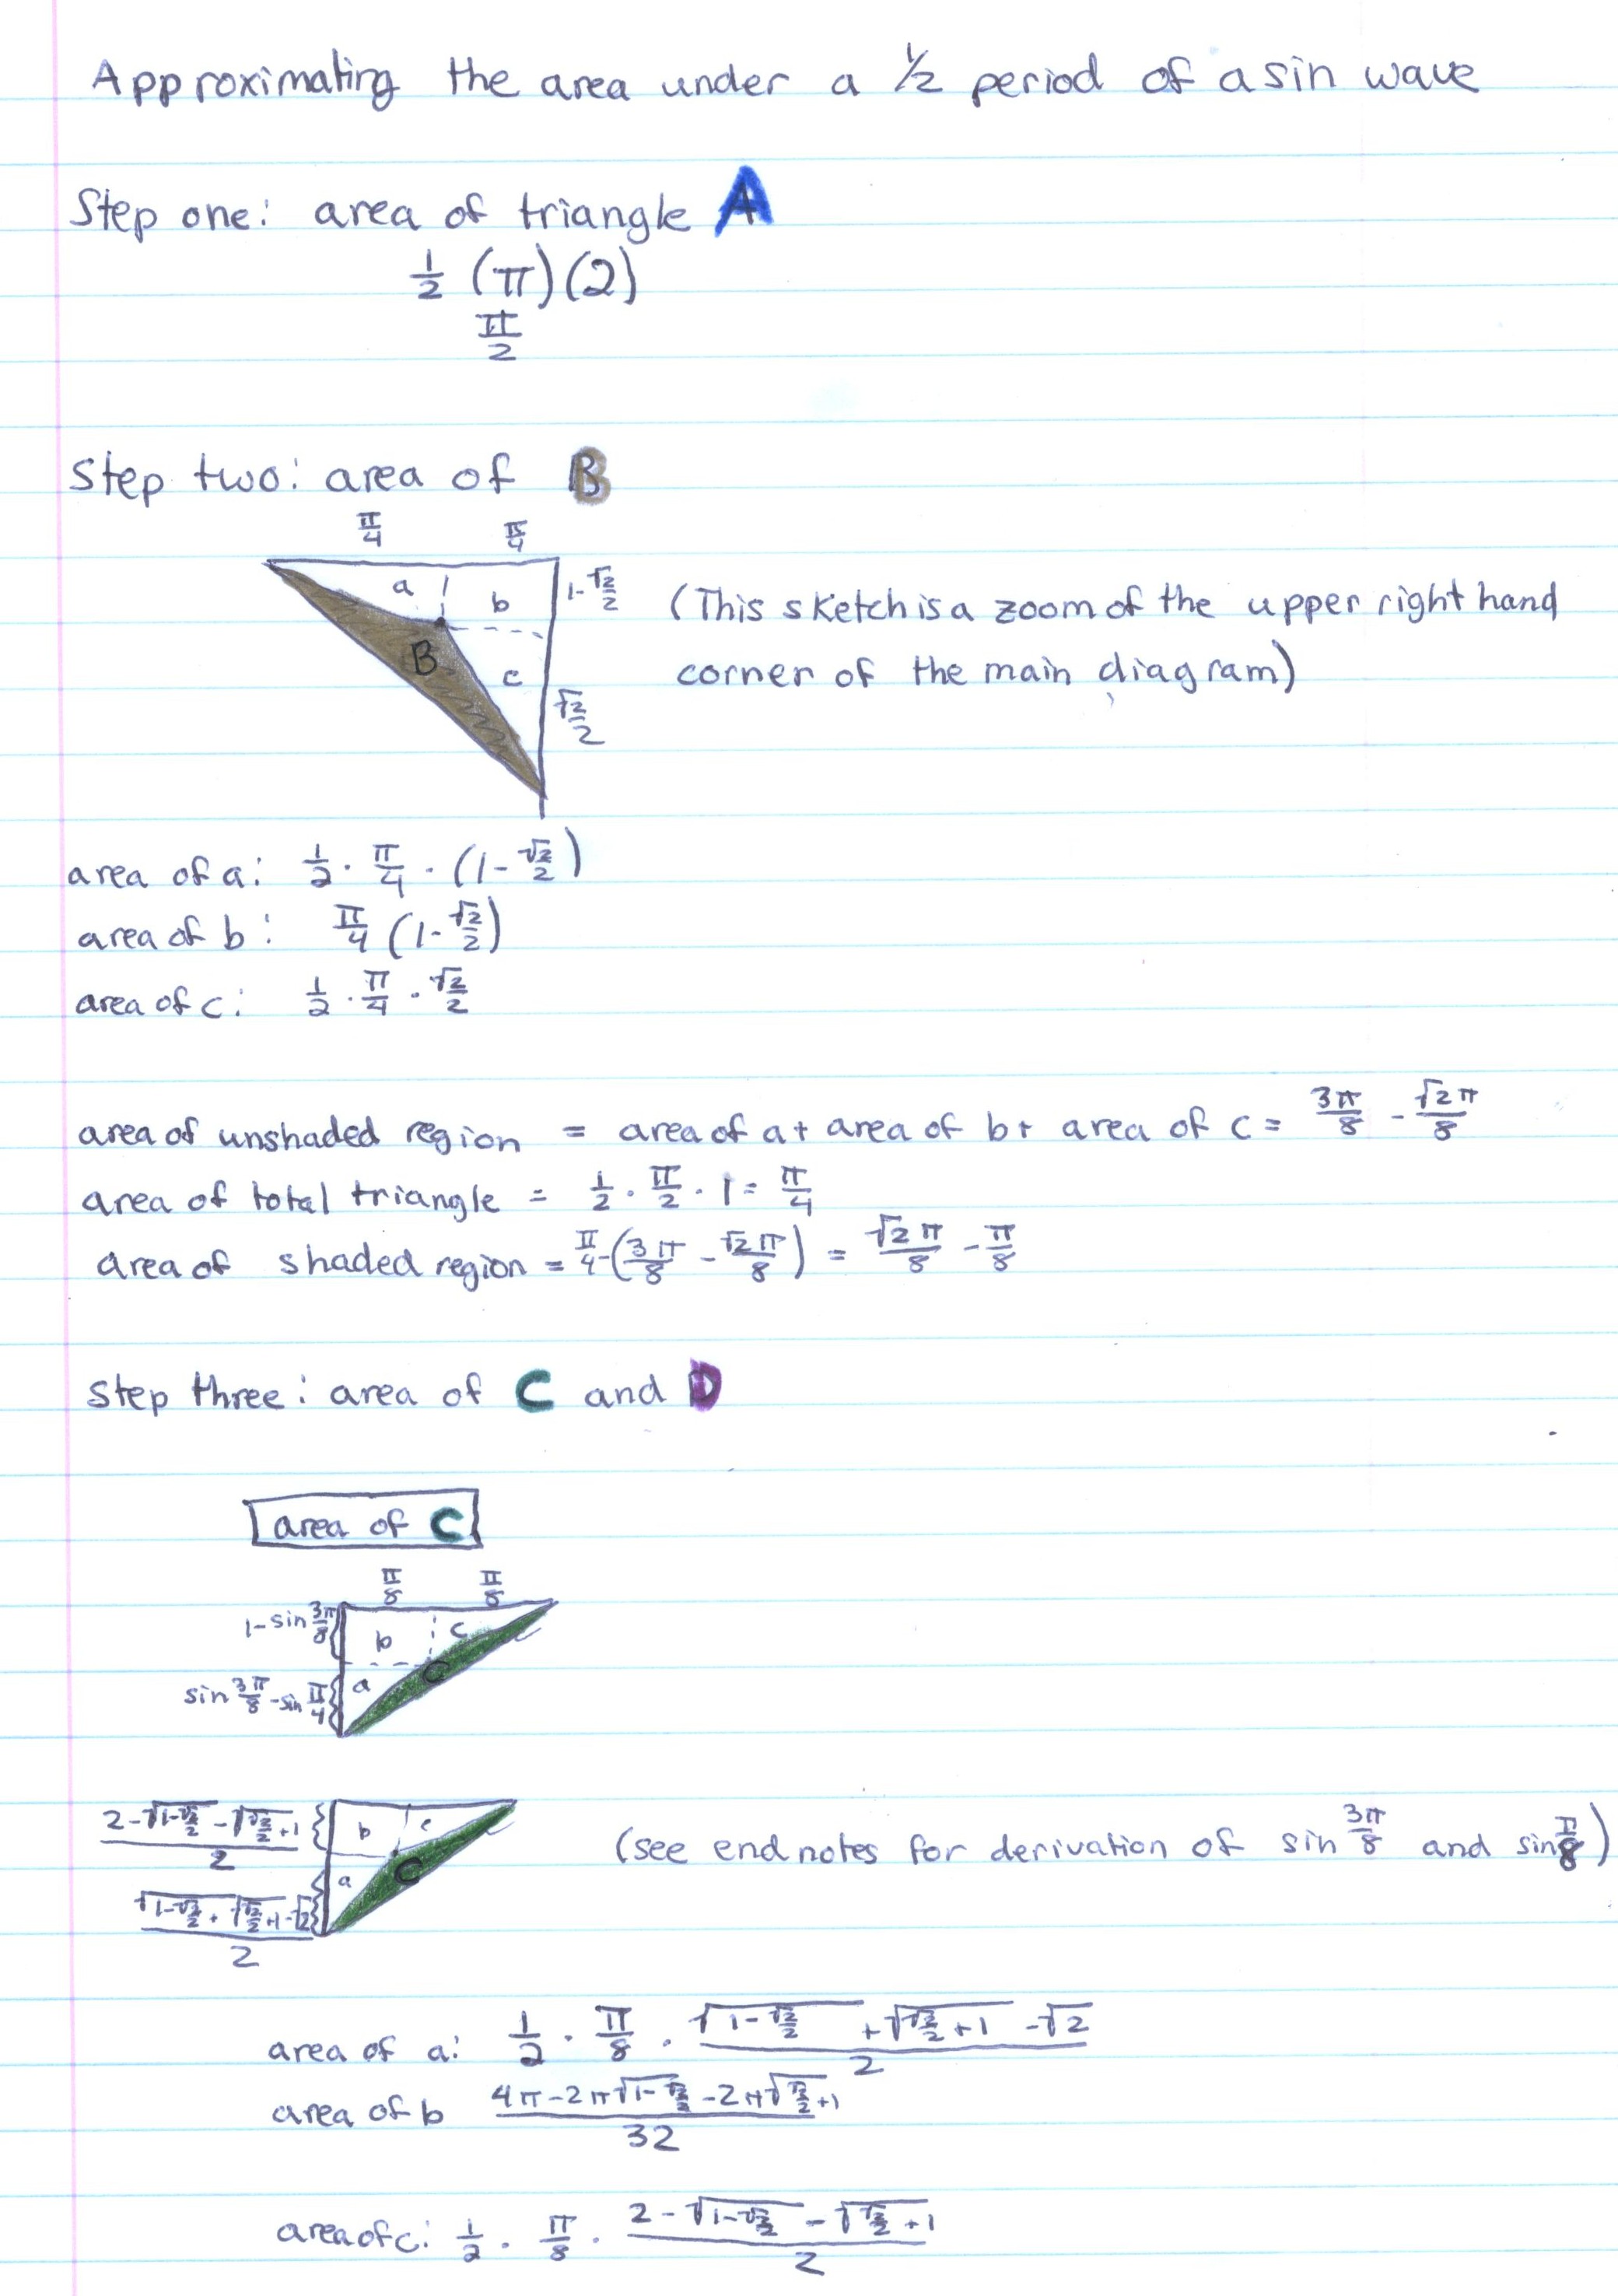 Approximating the area under a ½ period of a sin wave
Step one: area of triangle A
1/2 (π)(2)
π/2
Step two: area of B
π/4 π/4
a b 1-√2/2
B c √2/2
(This sketch is a zoom of the upper right hand
corner of the main diagram)
area of a: 1/2 · π/4 · (1-√2/2)
area of b: π/4 (1-√2/2)
area of c: 1/2 · π/4 · √2/2
area of unshaded region = area of a + area of b + area of c = 3π/8 - √2π/8
area of total triangle = 1/2 · π/2 · 1 = π/4
area of shaded region = π/4-(3π/8 - √2π/8) = √2π/8 - π/8
Step three: area of C and D
area of C
π/8 π/8
1-sin 3π/8 b c
sin 3π/8 - sin π/4 a C
(2-√(1-√2/2) - √(√2/2+1))/2 b c
(√(1-√2/2) + √(√2/2+1) - √2)/2 a C
(see end notes for derivation of sin 3π/8 and sin π/8)
area of a: 1/2 · π/8 · (√(1-√2/2) + √(√2/2+1) - √2)/2
area of b (4π-2π√(1-√2/2) - 2π√(√2/2+1))/32
area of c: 1/2 · π/8 · (2-√(1-√2/2) - √(√2/2+1))/2